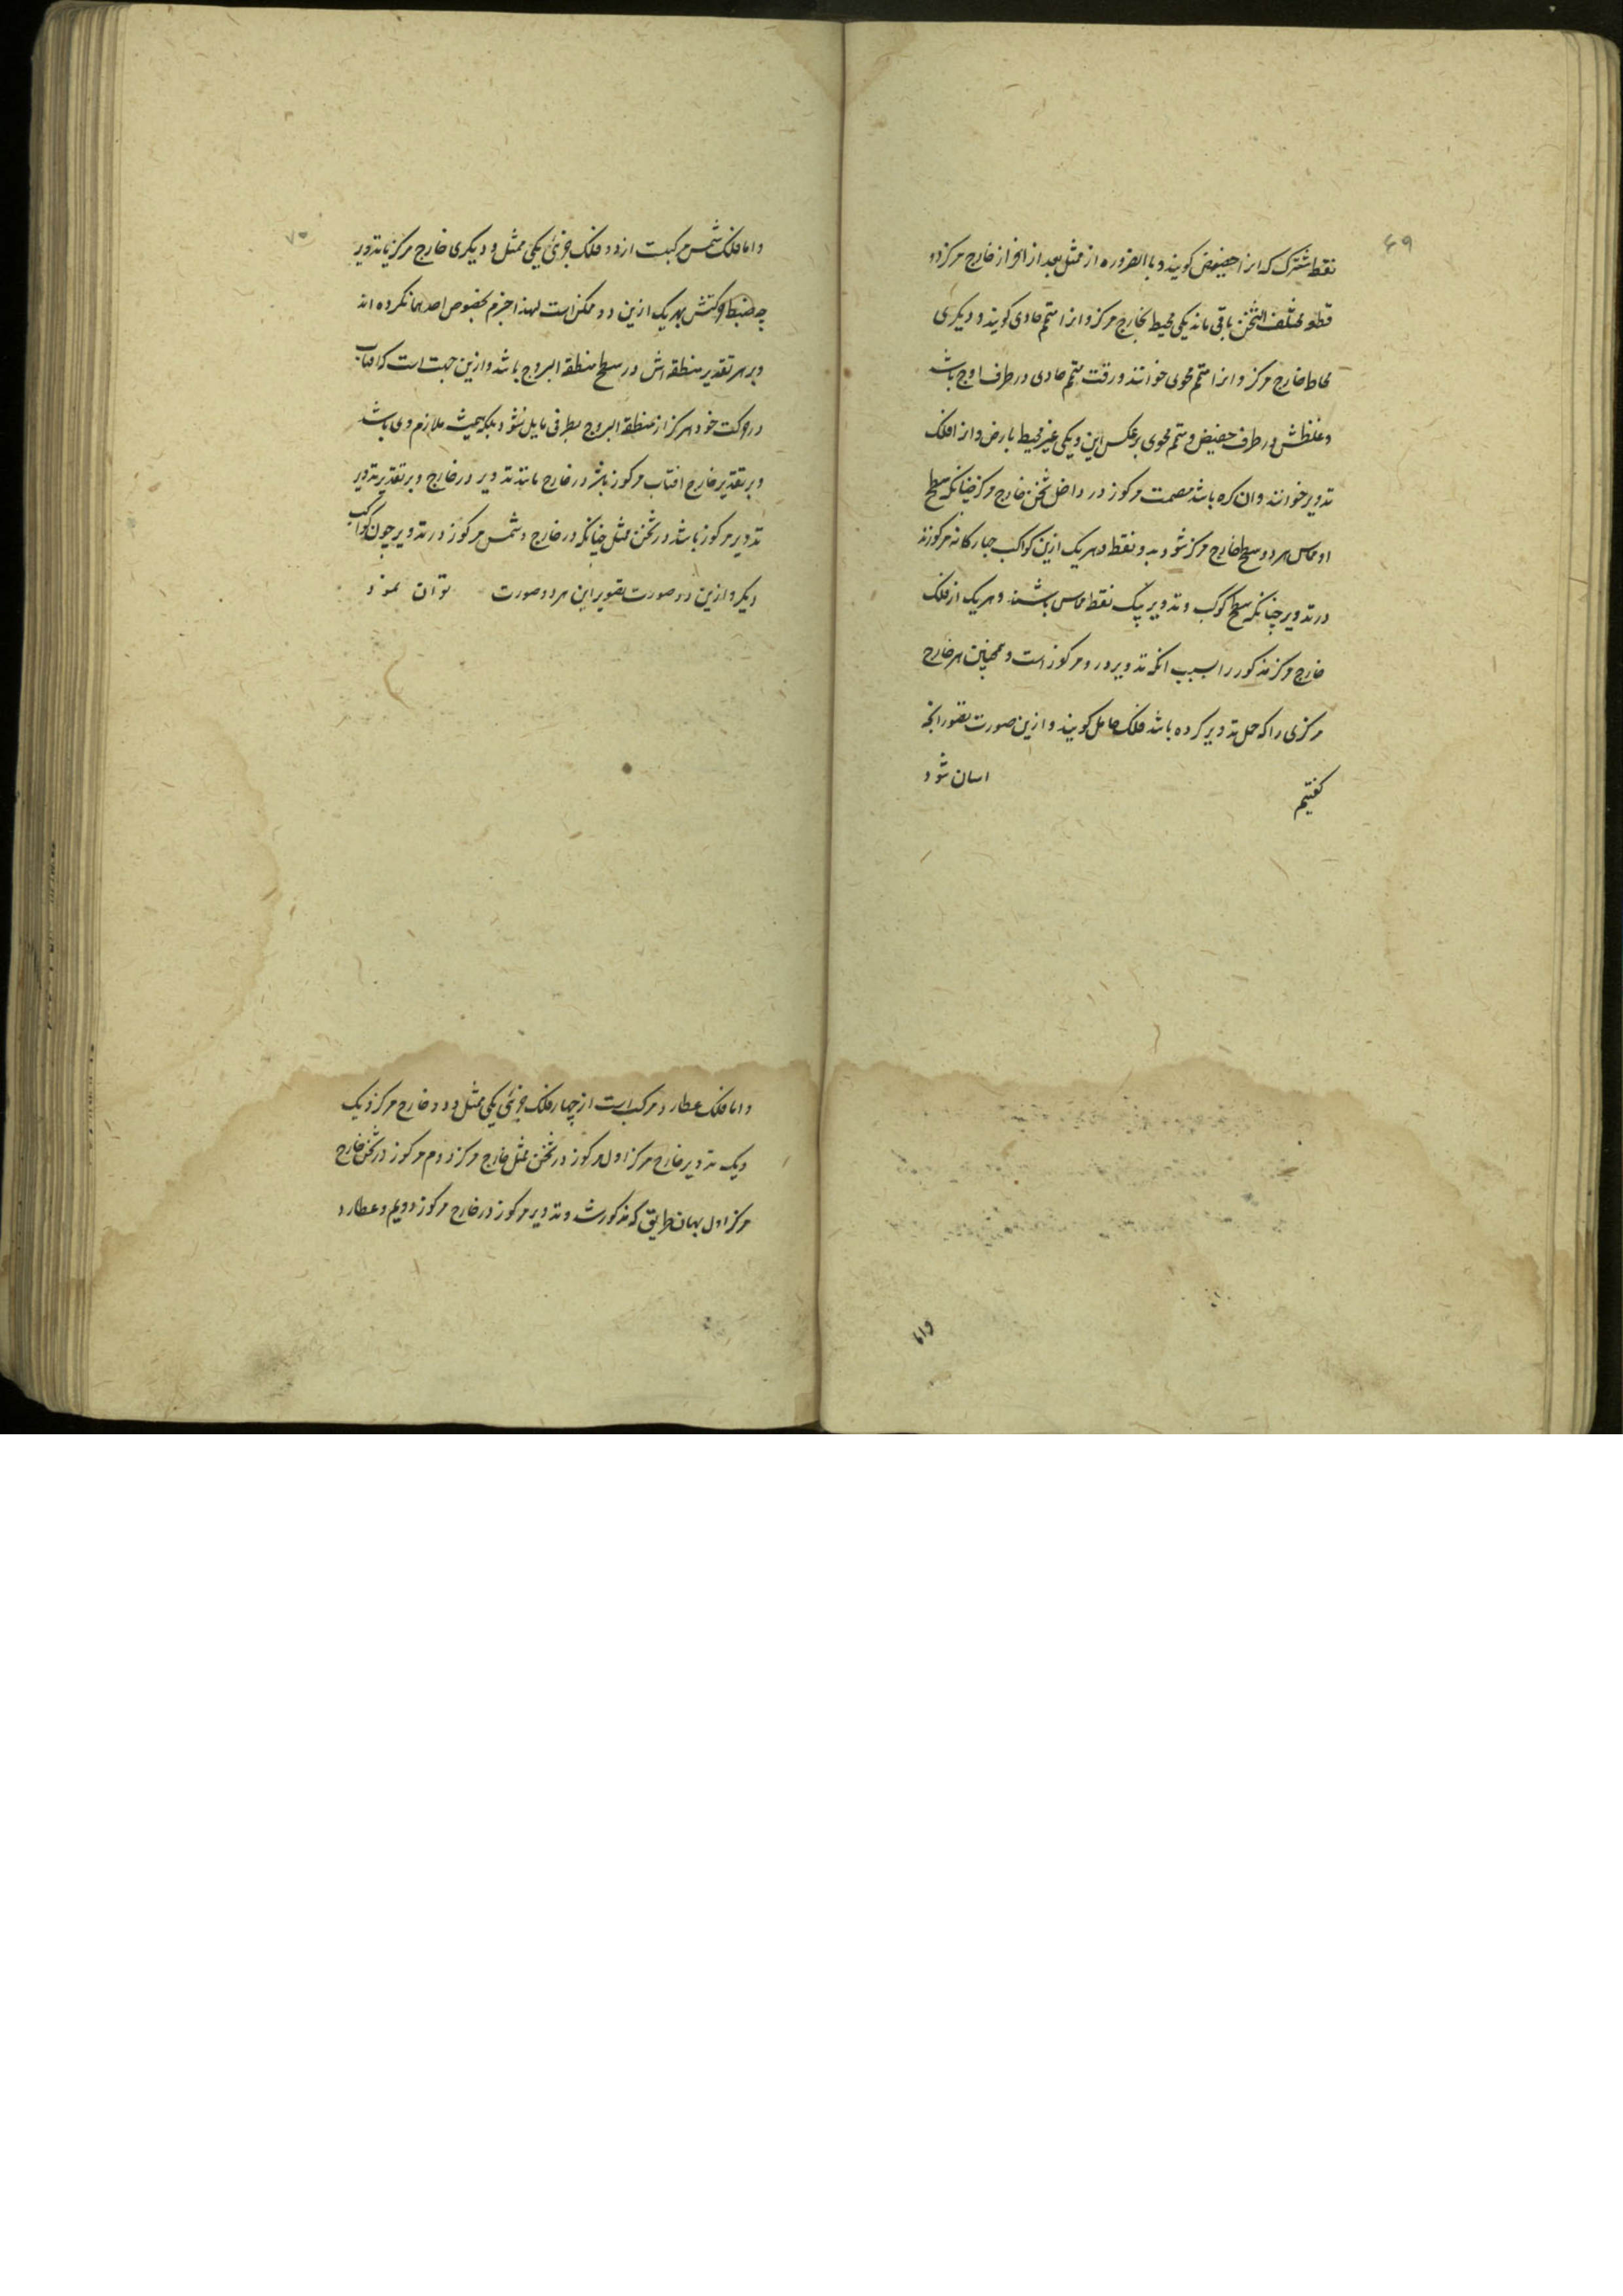 ۶۹
نقطه مشترک که انرا حضیض کویند و بالضروره از ممثل بعد از افراز خارج مرکز دو
قطعه مختلف الثخن باقی ماند یکی محیط بخارج مرکز و انرا متمم حاوی کویند و دیکری
محاط خارج مرکز و انرا متمم محوی خوانند ورقت متمم حاوی در طرف اوج باشد
و غلظش در طرف حضیض و متمم محوی برعکس این و یکی غیر محیط بارض و انرا فلک
تدویر خوانند وان کره باشد مصمت مرکوز در داخل ثخن خارج مرکز چنانکه سطح
او مماس هر دو سطح خارج مرکز شود بدو نقطه و هر یک ازین کواکب چهارکانه مرکوزند
در تدویر چنانکه سطح کوکب و تدویر بیک نقطه مماس باشند و هر یک از فلک
خارج مرکز مذکور را بسبب انکه تدویر درو مرکوز است و همچنین هر خارج
مرکزی را که حمل تدویر کرده باشد فلک حامل کویند و ازین صورت تصور انچه
کفتیم اسان شود
واما
۷۰
واما فلک شمس مرکبست از دو فلک جزئی یکی ممثل و دیکری خارج مرکز یا تدویر
چه ضبط حرکتش بهر یک ازین دو ممکن است لهذا جزم بخصوص احدهما نکرده اند
و بر هر تقدیر منطقه اش در سطح منطقة البروج باشد وازین جهت است که افتاب
در حرکت خود هرکز از منطقة البروج بطرفی مایل نشود بلکه همیشه ملازم وی باشد
و بر تقدیر خارج افتاب مرکوز باشد در خارج مانند تدویر در خارج و بر تقدیر تدویر
تدویر مرکوز باشد در ثخن ممثل چنانکه در خارج و شمس مرکوز در تدویر چون کواکب
دیکر وازین دو صورت تصویر این هر دو صورت توان نمود
واما فلک عطارد مرکب است از چهار فلک جزئی یکی ممثل و دو خارج مرکز و یک
و یک تدویر خارج مرکز اول مرکوز در ثخن ممثل خارج مرکز دوم مرکوز در ثخن خارج
مرکز اول بهمان طریق که مذکور شد و تدویر مرکوز در خارج مرکوز دویم و عطارد